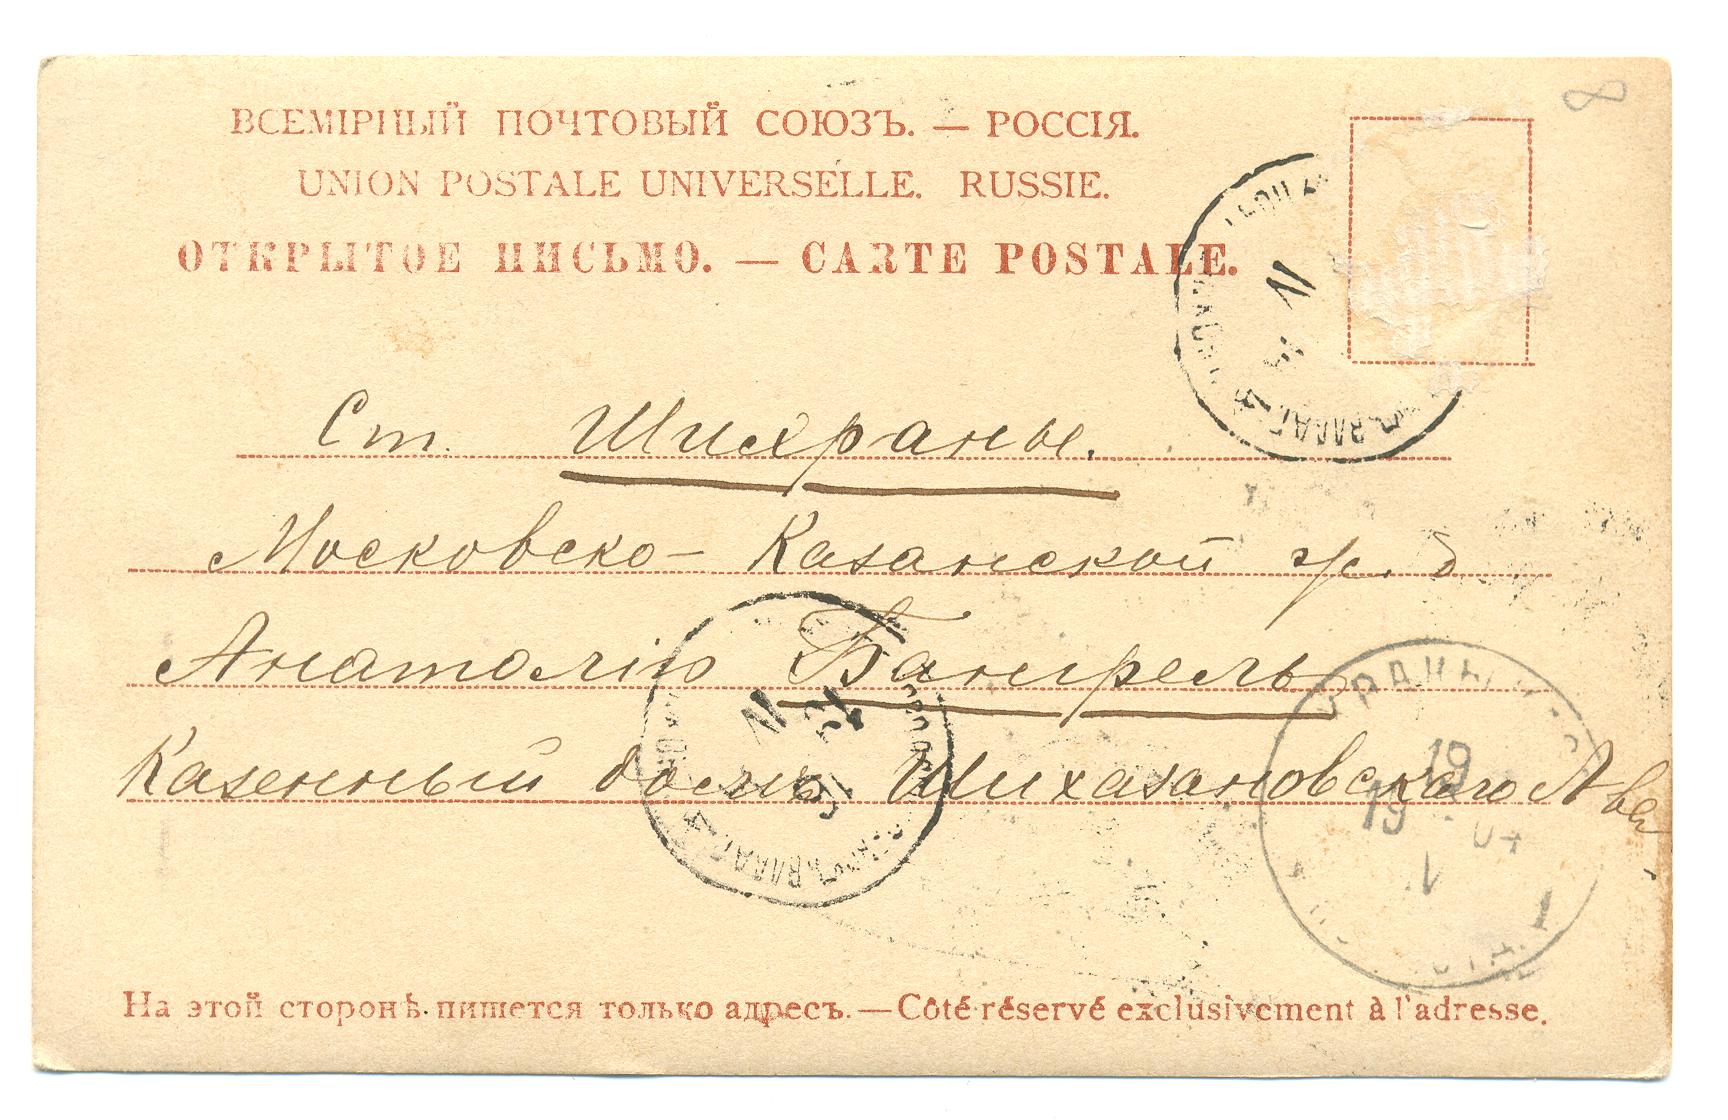 ВСЕМІРНЫЙ ПОЧТОВЫЙ СОЮЗЪ. — РОССІЯ.
UNION POSTALE UNIVERSELLE. RUSSIE.
ОТКРЫТОЕ ПИСЬМО. — CARTE POSTALE.
8
Ст. Шихраны.
Московско-Казанской ж. д
Анатолію
Казенный домъ Шихазановскаго
19
19
04
1
На этой сторонѣ пишется только адресъ. — Côté réservé exclusivement à l'adresse.